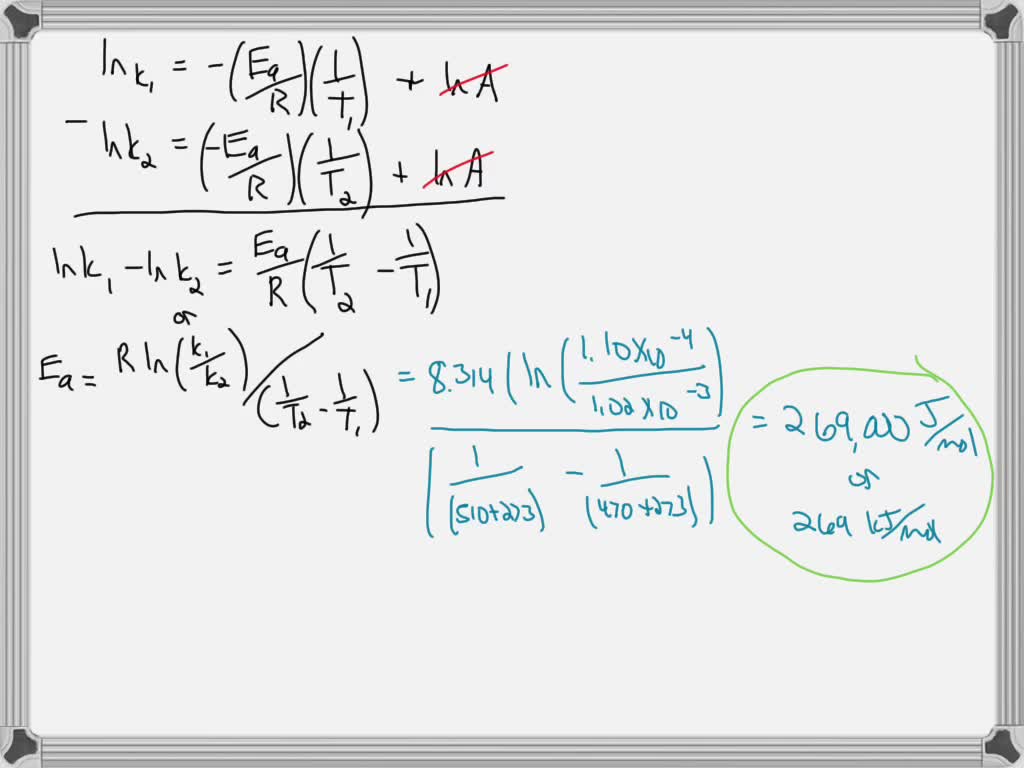 ln k₁ = -(Ea/R)(1/T₁) + ln A
- ln k₂ = (-Ea/R)(1/T₂) + ln A
ln k₁ - ln k₂ = Ea/R (1/T₂ - 1/T₁)
or
Ea = R ln(k₁/k₂) / (1/T₂ - 1/T₁) = 8.314 (ln (1.10×10⁻⁴ / 1.02×10⁻³) / (1/(510+273) - 1/(470+273)) = 269,000 J/mol
or
269 kJ/mol